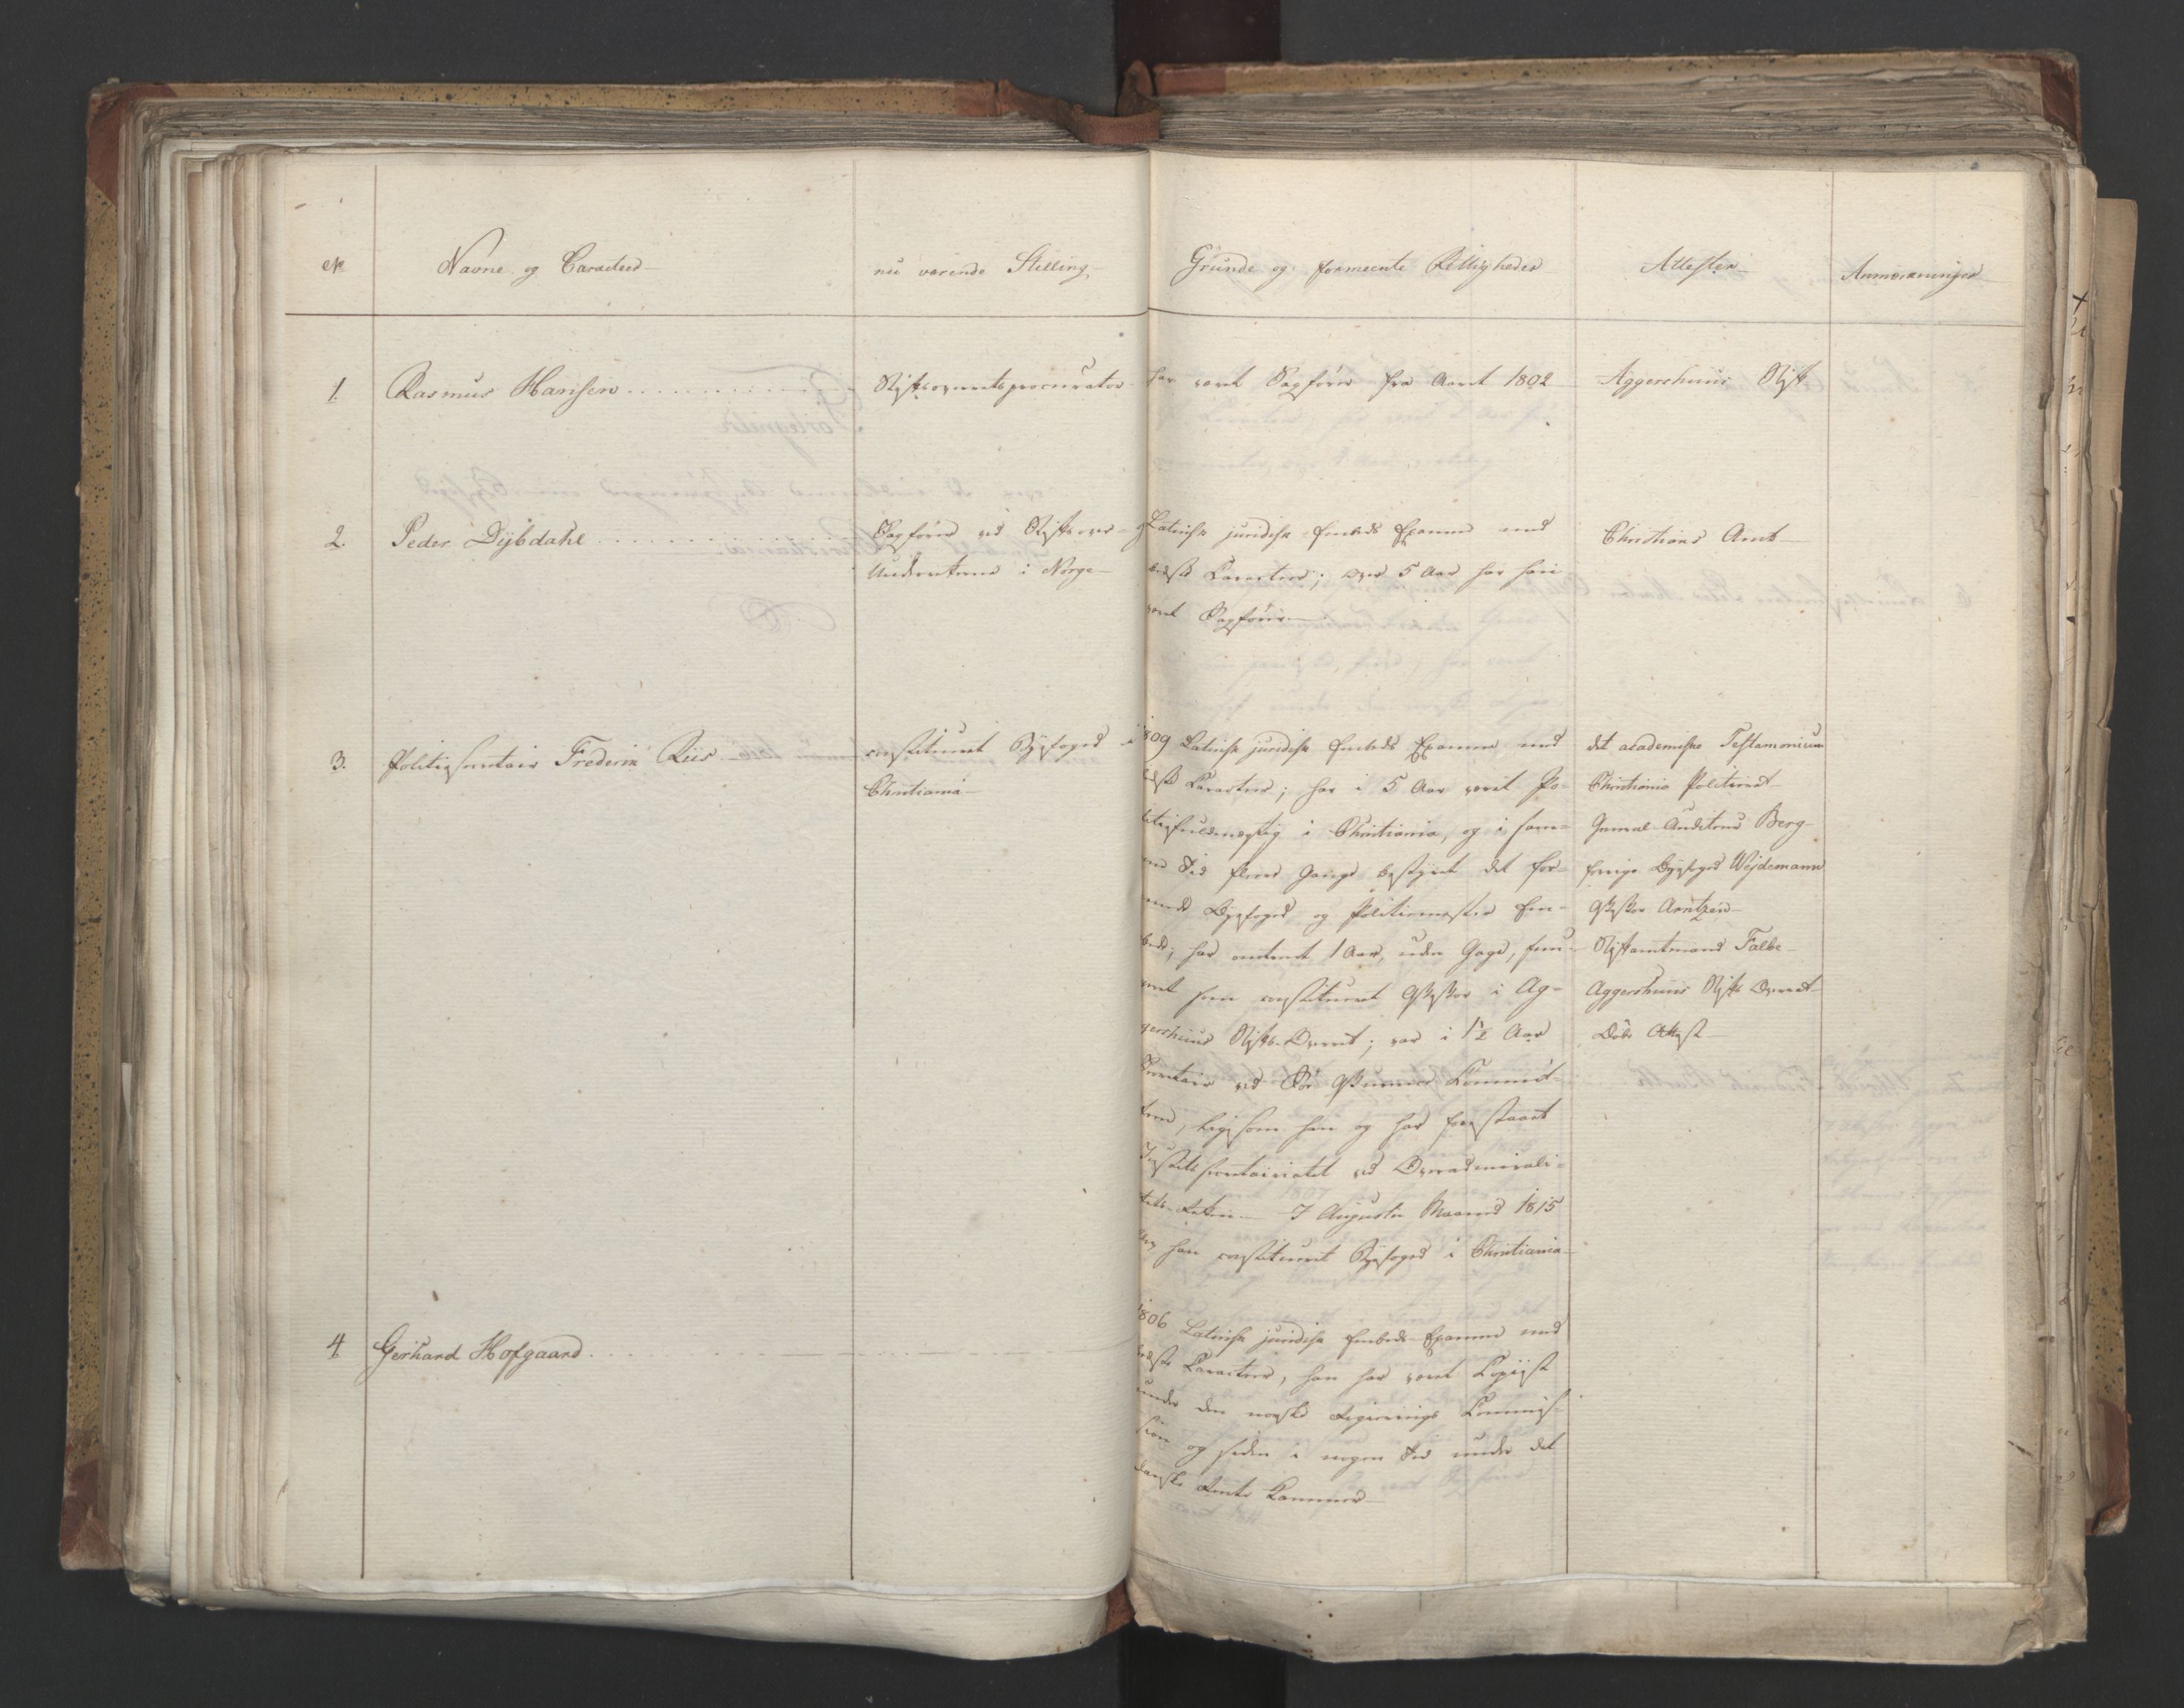 No Navne og Caracteer nu værende Stilling Grunde og formeente Rettigheder Attester Anmærkninger
1. Rasmus Hansen Stiftsoverretsprocurator har været Sagfører fra Aaret 1802 Aggershuus Stift
2. Peder Dybdahl
Sagfører ved Stiftsover- og
Underretterne i Norge
Latinsk juridisk Embeds Examen med
bedste Caracteer; over 5 Aar har han
været Sagfører
Christians Amt
3. Politiesecretair Frederik Riis
constitueret Byfoged i
Christiania
1809 Latinsk juridisk Embeds Examen med
bedste Caracteer; har i 5 Aar været Po-
litiefuldmægtig i Christiania, og i sam-
me Tid flere Gange bestyret det for-
enede Byfoged og Politiemester Em-
bede; har omtrent 1 Aar, uden Gage, fun-
geret som constitueret Assessor i Ag-
gershuus Stifts-Overret; var i 1½ Aar
Secretair ved Prise Commit-
teen, ligesom han og har forestaaet
Justitssecretairiatet ved Overadmirali-
tets-Retten I Augusti Maaned 1815
blev han constitueret Byfoged i Christiania
det academiske Testamonium
Christiania Politieret
General-Auditeur Berg
forrige Byfoged Wejdemann
Assessor Arntzen
Stiftamtmand Falbe
Aggershuus Stifts Overret
Døbe Attest
4 Gerhard Hofgaard
1806 Latinsk juridisk Embeds-Examen med
bedste Caracteer, han har været Copiist
under den norske Regierings Commis-
sion og siden i nogen Tid under det
danske Rente Kammer